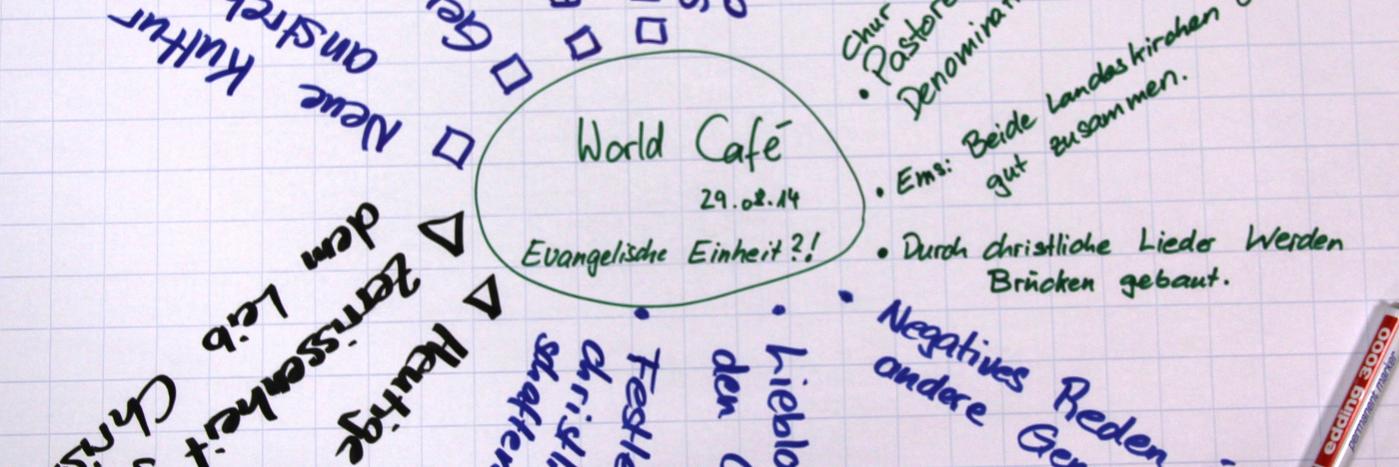 World Café
29.08.14
Evangelische Einheit?!
Chur
• Pastore
Denomina
• Ems: Beide Landeskirchen
gut zusammen.
• Durch christliche Lieder Werden
Brücken gebaut.
• Negatives Reden
andere Ge
• Lieblo
den
• Festle
christl
schaffen
Heutige
Zerrissenheit
dem Leib
Chris
Neue Kultur
anstre
Ge
edding 3000
permanent marker